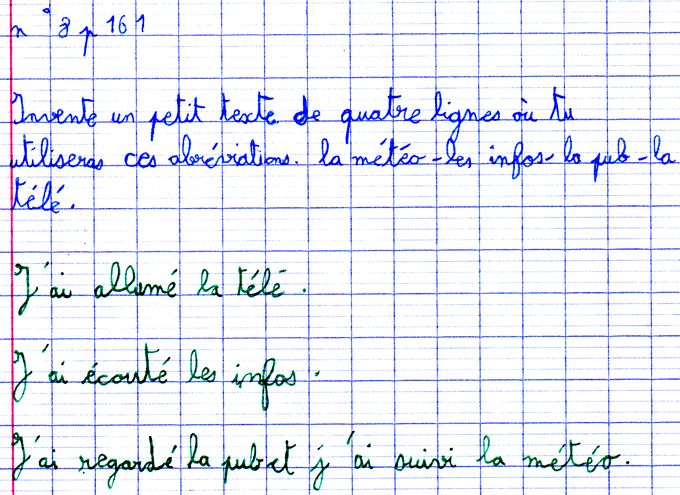 n° 3 p 161
Invente un petit texte de quatre lignes où tu
utiliseras ces abréviations. la météo - les infos - la pub - la
télé.
J'ai allumé la télé.
J'ai écouté les infos.
J'ai regardé la pub et j'ai suivi la météo.